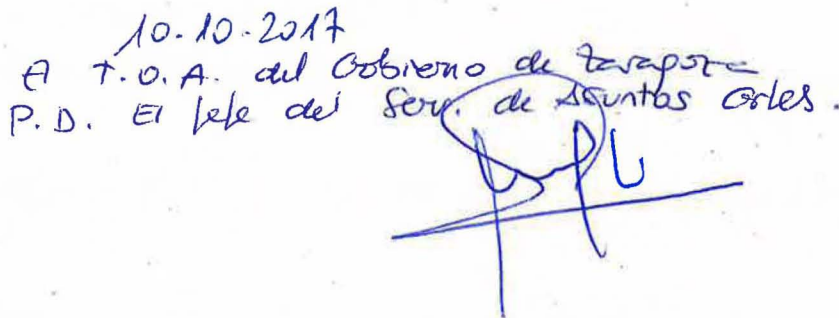 10-10-2017
El T.O.A. del Gobierno de Zaragoza
P.D. El Jefe del Serv. de Asuntos Grles.